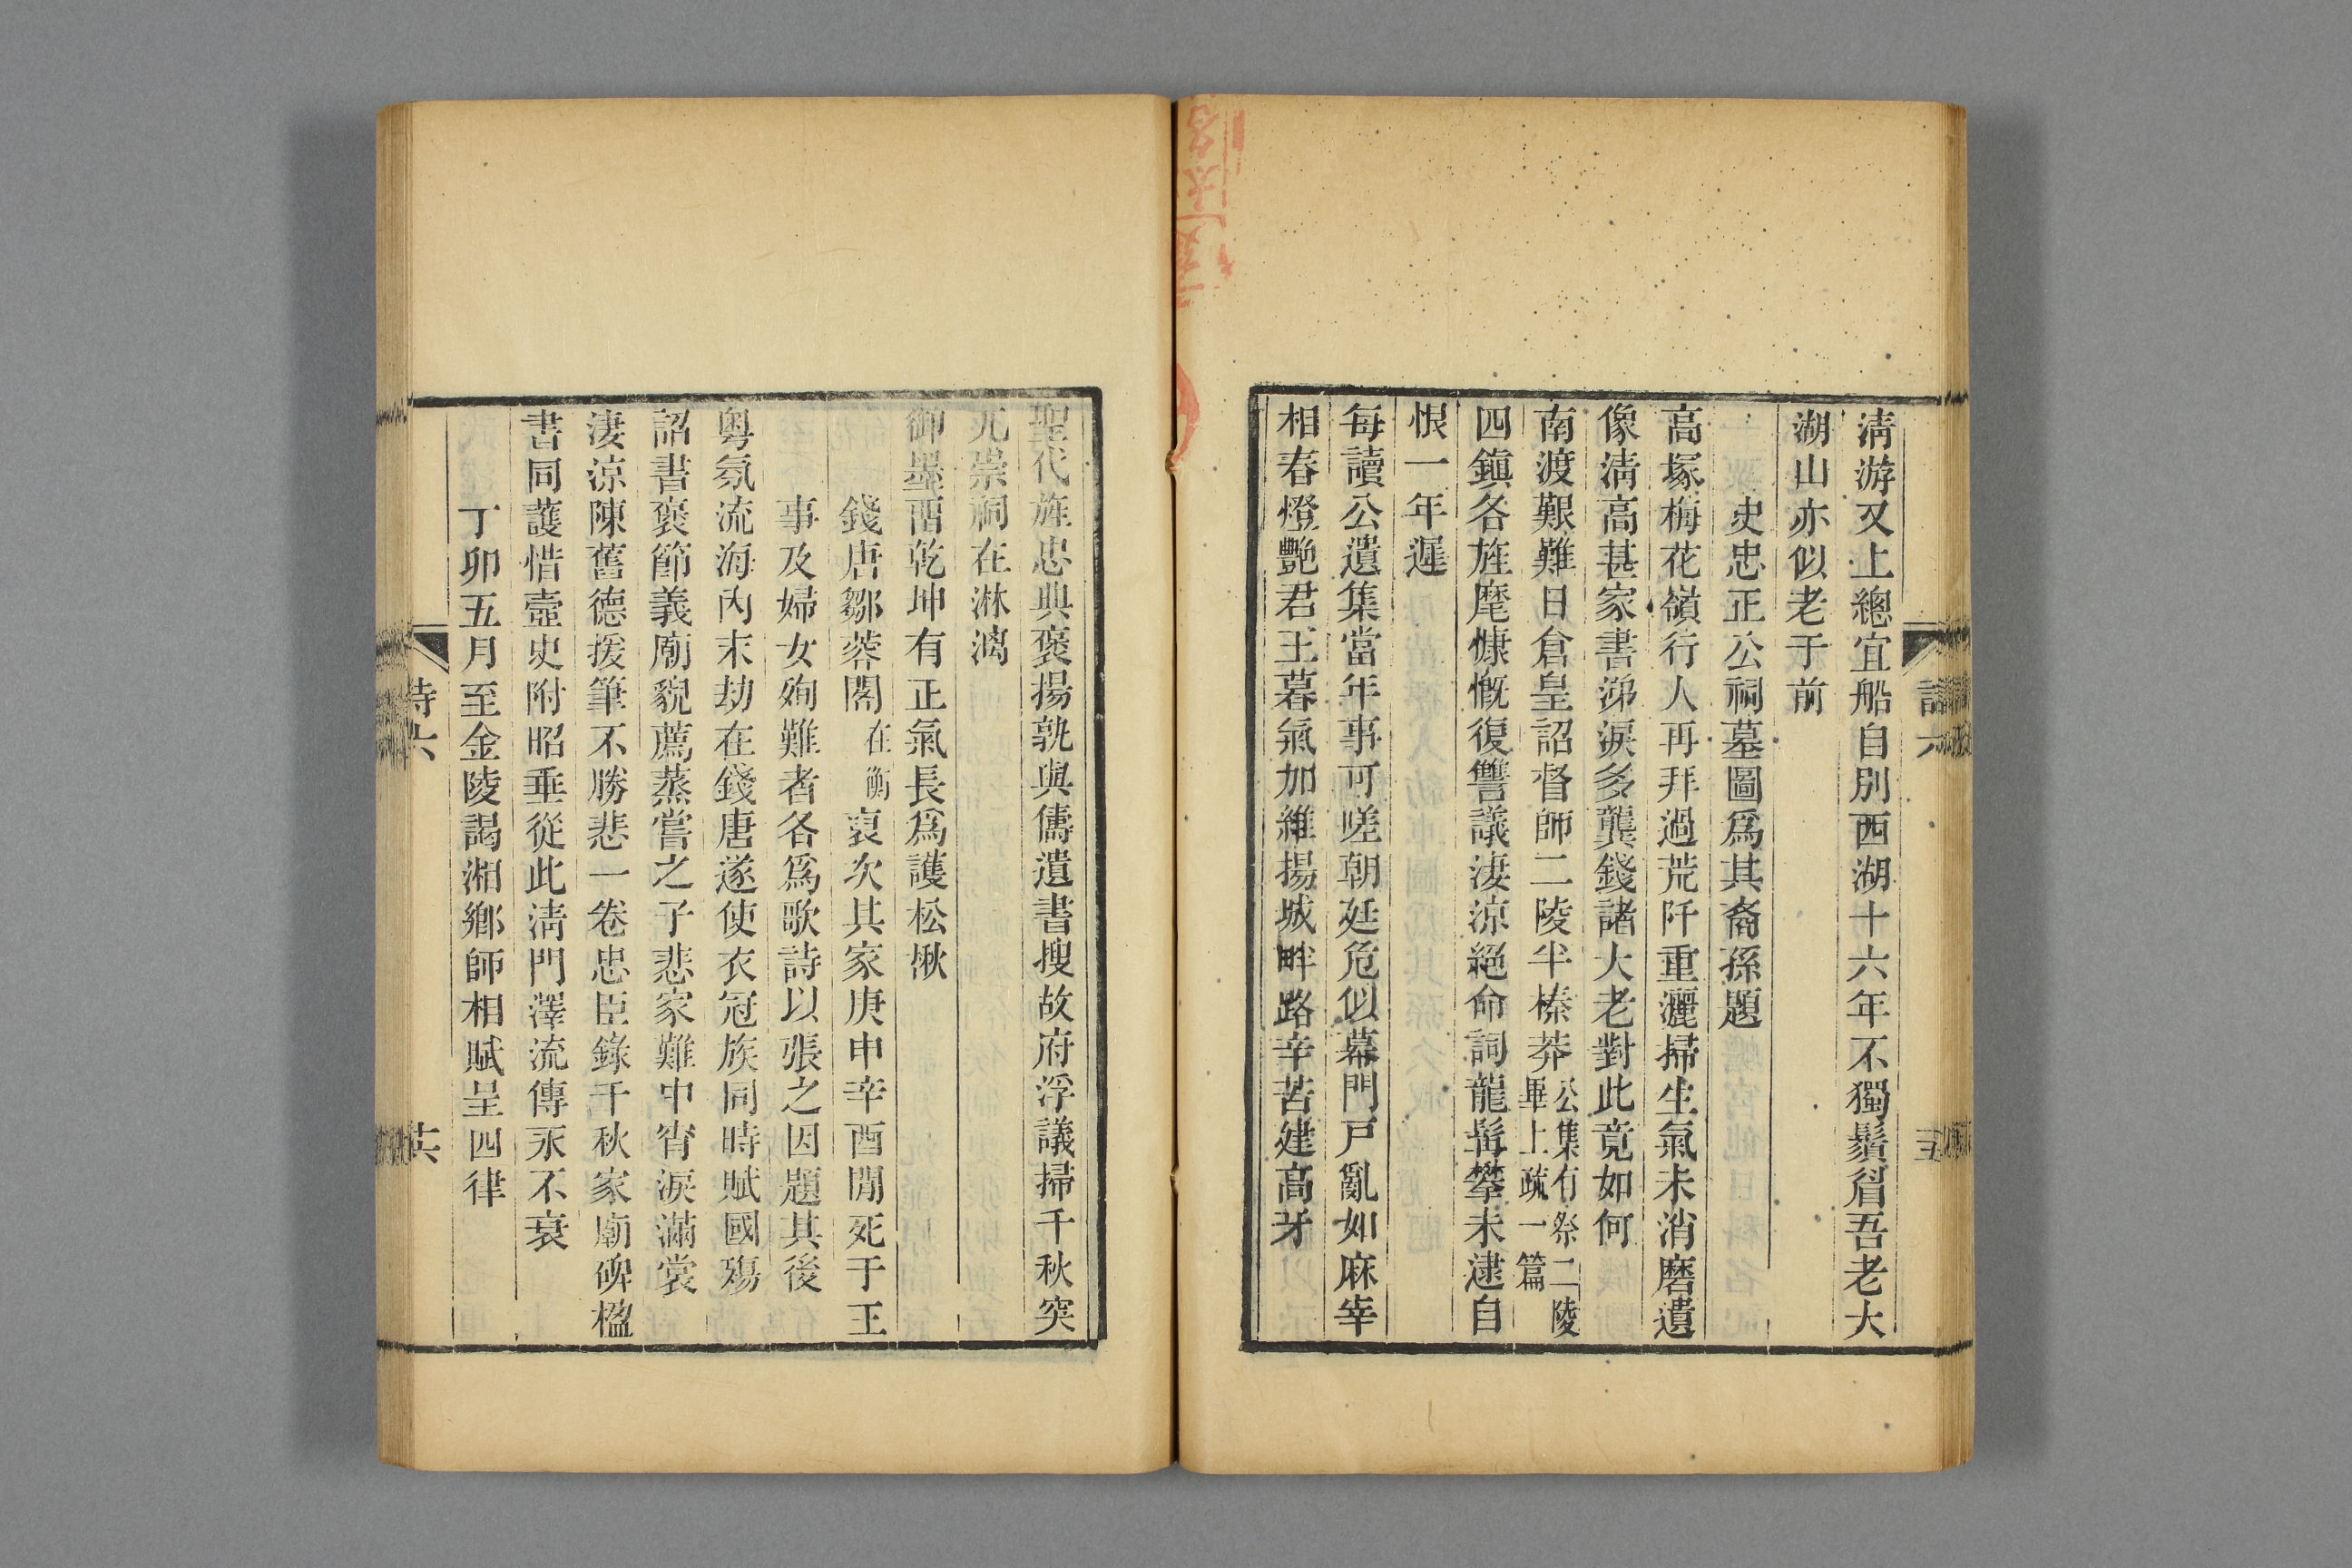 清游又上總宜船自別西湖十六年不獨鬚眉吾老大
湖山亦似老于前
史忠正公祠墓圖爲其裔孫題
高塚梅花嶺行人再拜過荒阡重灑掃生氣未消磨遺
像清高甚家書涕淚多龔錢諸大老對此竟如何
南渡艱難日倉皇詔督師二陵半榛莽公集有祭二陵畢上疏一篇
四鎮各旌麾慷慨復讐議淒涼絕命詞龍髯攀未逮自
恨一年遲
每讀公遺集當年事可嗟朝廷危似幕門戸亂如麻宰
相春燈艷君王暮氣加維揚城畔路辛苦建高牙
聖代旌忠典褒揚孰與儔遺書搜故府浮議掃千秋突
兀崇祠在淋漓
御墨畱乾坤有正氣長爲護松楸
錢唐鄒蓉閣在衡裒次其家庚申辛酉閒死于王
事及婦女殉難者各爲歌詩以張之因題其後
粵氛流海內末劫在錢唐遂使衣冠族同時賦國殤
詔書褒節義廟貌薦蒸嘗之子悲家難中宵淚滿裳
淒涼陳舊德援筆不勝悲一卷忠臣錄千秋家廟碑楹
書同護惜壼史附昭垂從此清門澤流傳永不衰
丁卯五月至金陵謁湘鄉師相賦呈四律
詩六